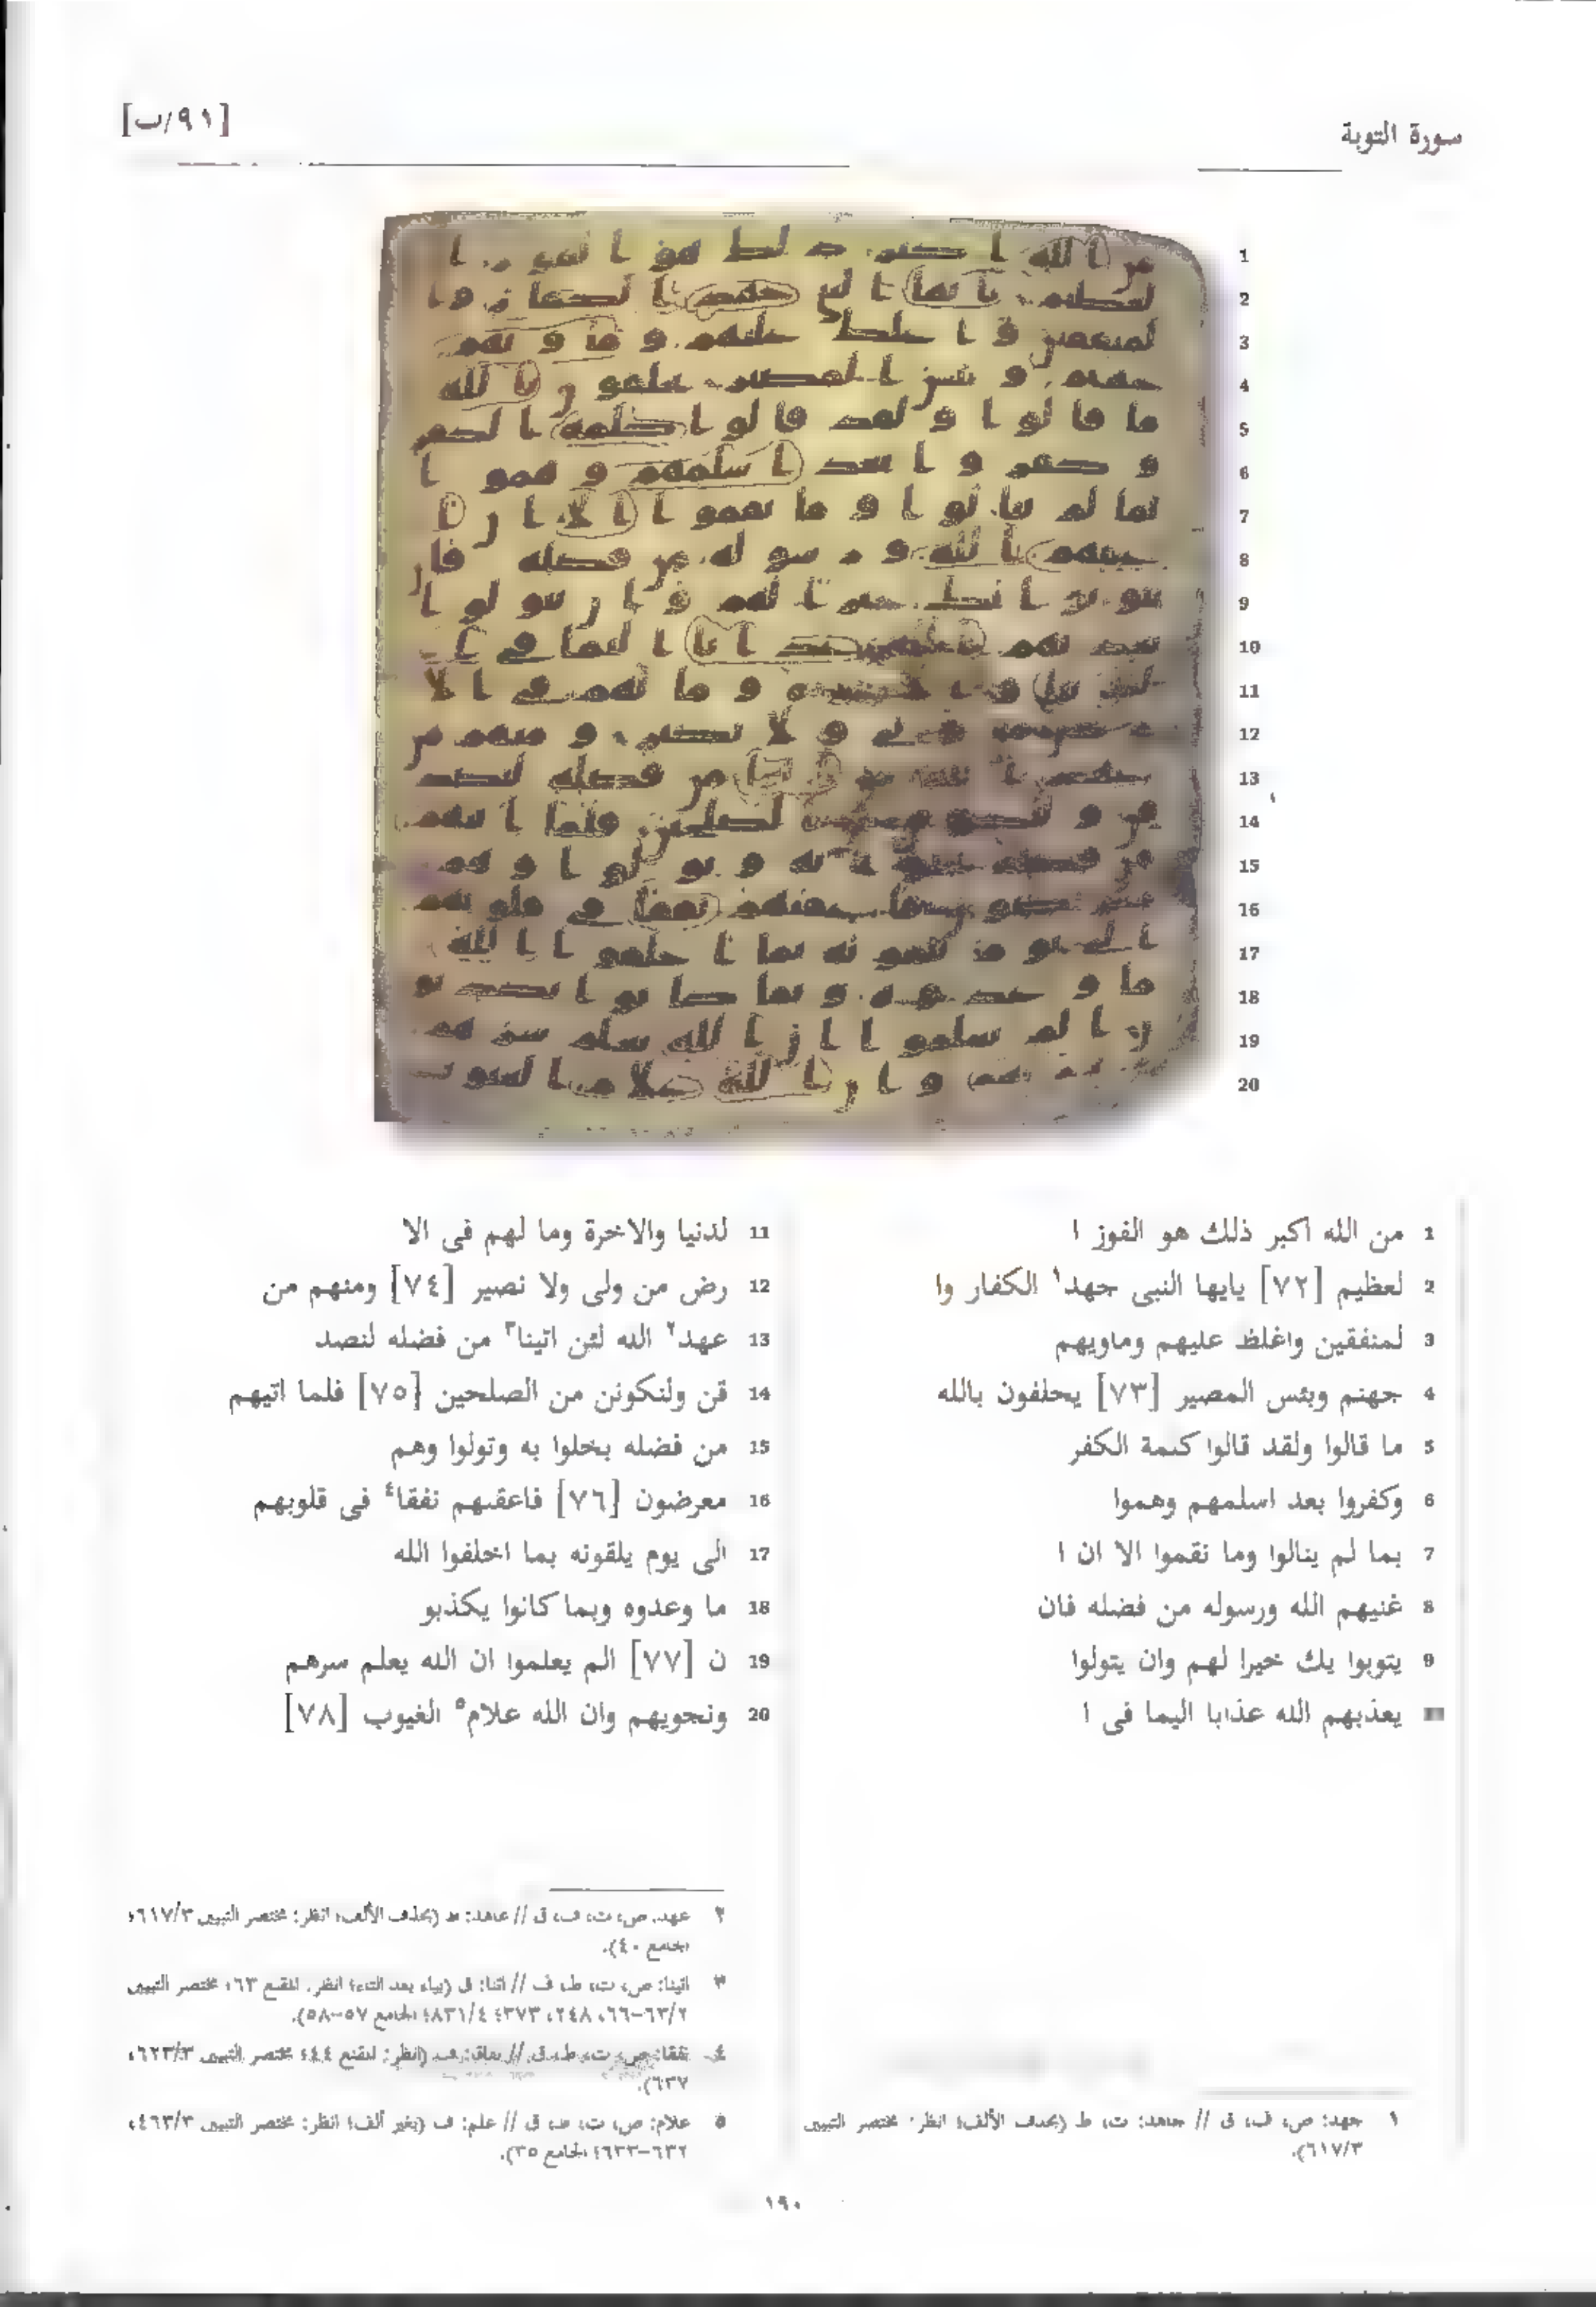 سورة التوبة
[٩١/ب]
1 من الله اكبر ذلك هو الفوز ا
2 لعظيم [٧٢] يايها النبى جهد١ الكفار وا
3 لمنفقين واغلظ عليهم وماويهم
4 جهنم وبئس المصير [٧٣] يحلفون بالله
5 ما قالوا ولقد قالوا كلمة الكفر
6 وكفروا بعد اسلمهم وهموا
7 بما لم ينالوا وما نقموا الا ان ا
8 غنيهم الله ورسوله من فضله فان
9 يتوبوا يك خيرا لهم وان يتولوا
يعذبهم الله عذابا اليما فى ا
11 لدنيا والاخرة وما لهم فى الا
12 رض من ولى ولا نصير [٧٤] ومنهم من
13 عهد٢ الله لئن اتينا٣ من فضله لنصد
14 قن ولنكونن من الصلحين [٧٥] فلما اتيهم
15 من فضله بخلوا به وتولوا وهم
16 معرضون [٧٦] فاعقبهم نفقا٤ فى قلوبهم
17 الى يوم يلقونه بما اخلفوا الله
18 ما وعدوه وبما كانوا يكذبو
19 ن [٧٧] الم يعلموا ان الله يعلم سرهم
20 ونجويهم وان الله علام٥ الغيوب [٧٨]
١ جهد: ص، ف، ق // جاهد: ت، ط (بحذف الألف؛ انظر: مختصر التبيين
٦١٧/٣).
٢ عهد: ص، ت، ف، ق // عاهد: ط (بحذف الألف؛ انظر: مختصر التبيين ٦١٧/٣؛
الجامع ٤٠).
٣ اتينا: ص، ت، ط، ف // اتنا: ق (بياء بعد التاء؛ انظر: المقنع ٦٣؛ مختصر التبيين
٦٣/٢-٦٦، ٢٤٨، ٣٧٣؛ ٨٣١/٤؛ الجامع ٥٧-٥٨).
٤ نفقا: ص، ت، ط، ق // نفاق: ف (انظر: المقنع ٤٤؛ مختصر التبيين ٦٢٣/٣،
٦٣٧).
٥ علام: ص، ت، ط، ق // علم: ف (بغير ألف؛ انظر: مختصر التبيين ٤٦٣/٣،
٦٣٢-٦٣٣؛ الجامع ٣٥).
١٩٠